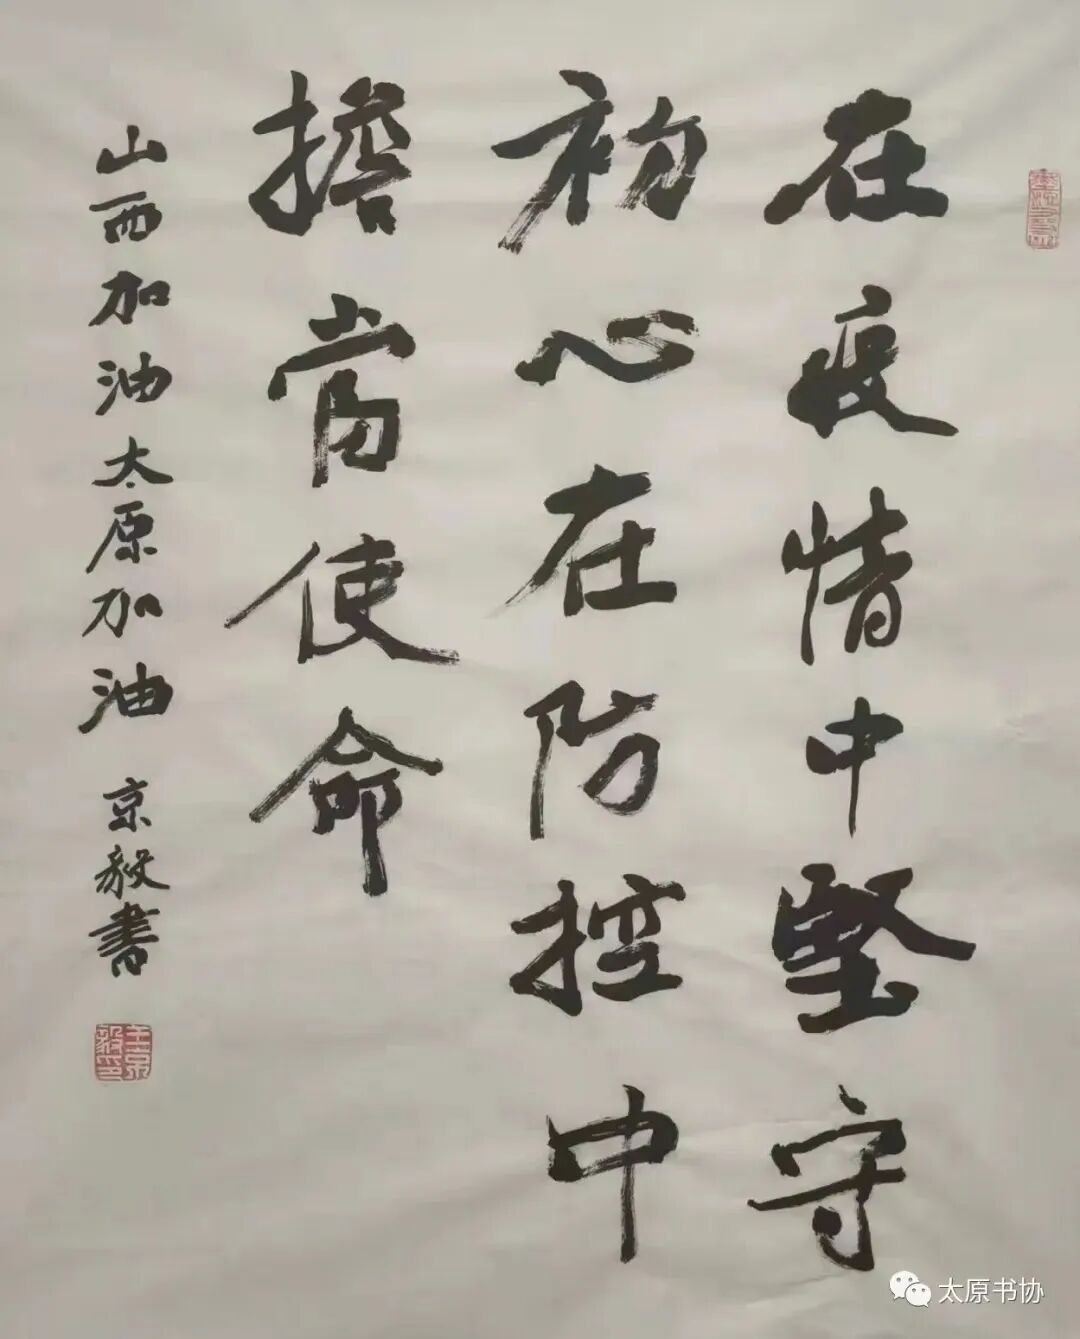 在疫情中堅守
初心在防控中
擔當使命
山西加油太原加油 京毅書
王京毅印
太原书协